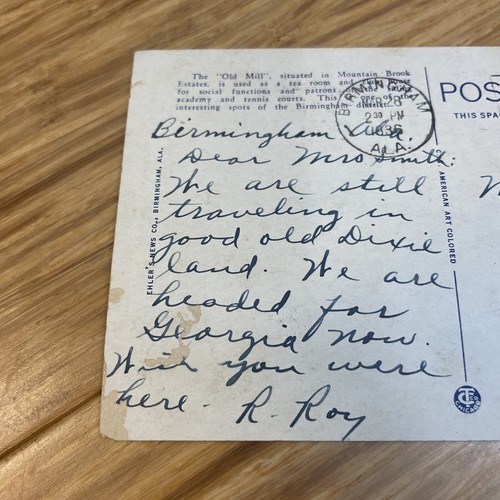 The "Old Mill", situated in Mountain Brook
Estates, is used as a tea room and
for social functions and patrons of the
academy and tennis courts. This is one of the
interesting spots of the Birmingham district.
BIRMINGHAM
2 30 PM
ALA.
POS
THIS SPA
Birmingham Ala.
Dear Mrs Smith:
We are still
traveling in
good old Dixie
land. We are
headed for
Georgia now.
Wish you were
here. R. Roy
EHLER'S NEWS CO., BIRMINGHAM, ALA.
AMERICAN ART COLORED
CHICAGO